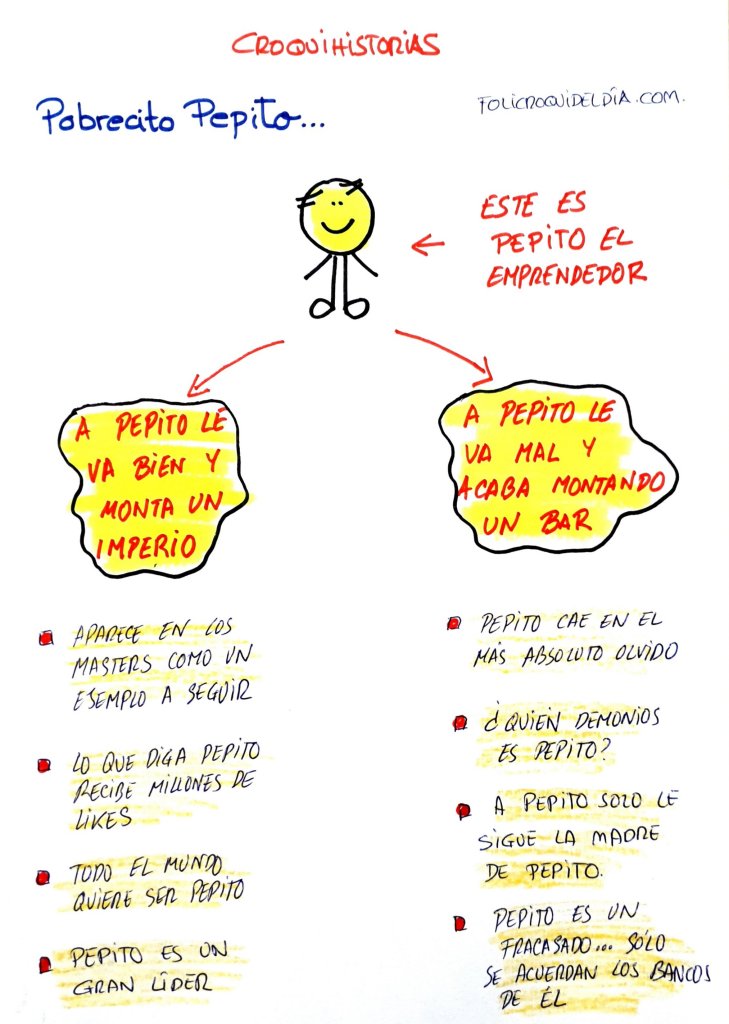 CROQUIHISTORIAS
Pobrecito Pepito...
FOLICROQUIDELDÍA.COM.
ESTE ES
PEPITO EL
EMPRENDEDOR
A PEPITO LE
VA BIEN Y
MONTA UN
IMPERIO
A PEPITO LE
VA MAL Y
ACABA MONTANDO
UN BAR
APARECE EN LOS
MASTERS COMO UN
EJEMPLO A SEGUIR
LO QUE DIGA PEPITO
RECIBE MILLONES DE
LIKES
TODO EL MUNDO
QUIERE SER PEPITO
PEPITO ES UN
GRAN LÍDER
PEPITO CAE EN EL
MÁS ABSOLUTO OLVIDO
¿QUIÉN DEMONIOS
ES PEPITO?
A PEPITO SOLO LE
SIGUE LA MADRE
DE PEPITO.
PEPITO ES UN
FRACASADO... SÓLO
SE ACUERDAN LOS BANCOS
DE ÉL